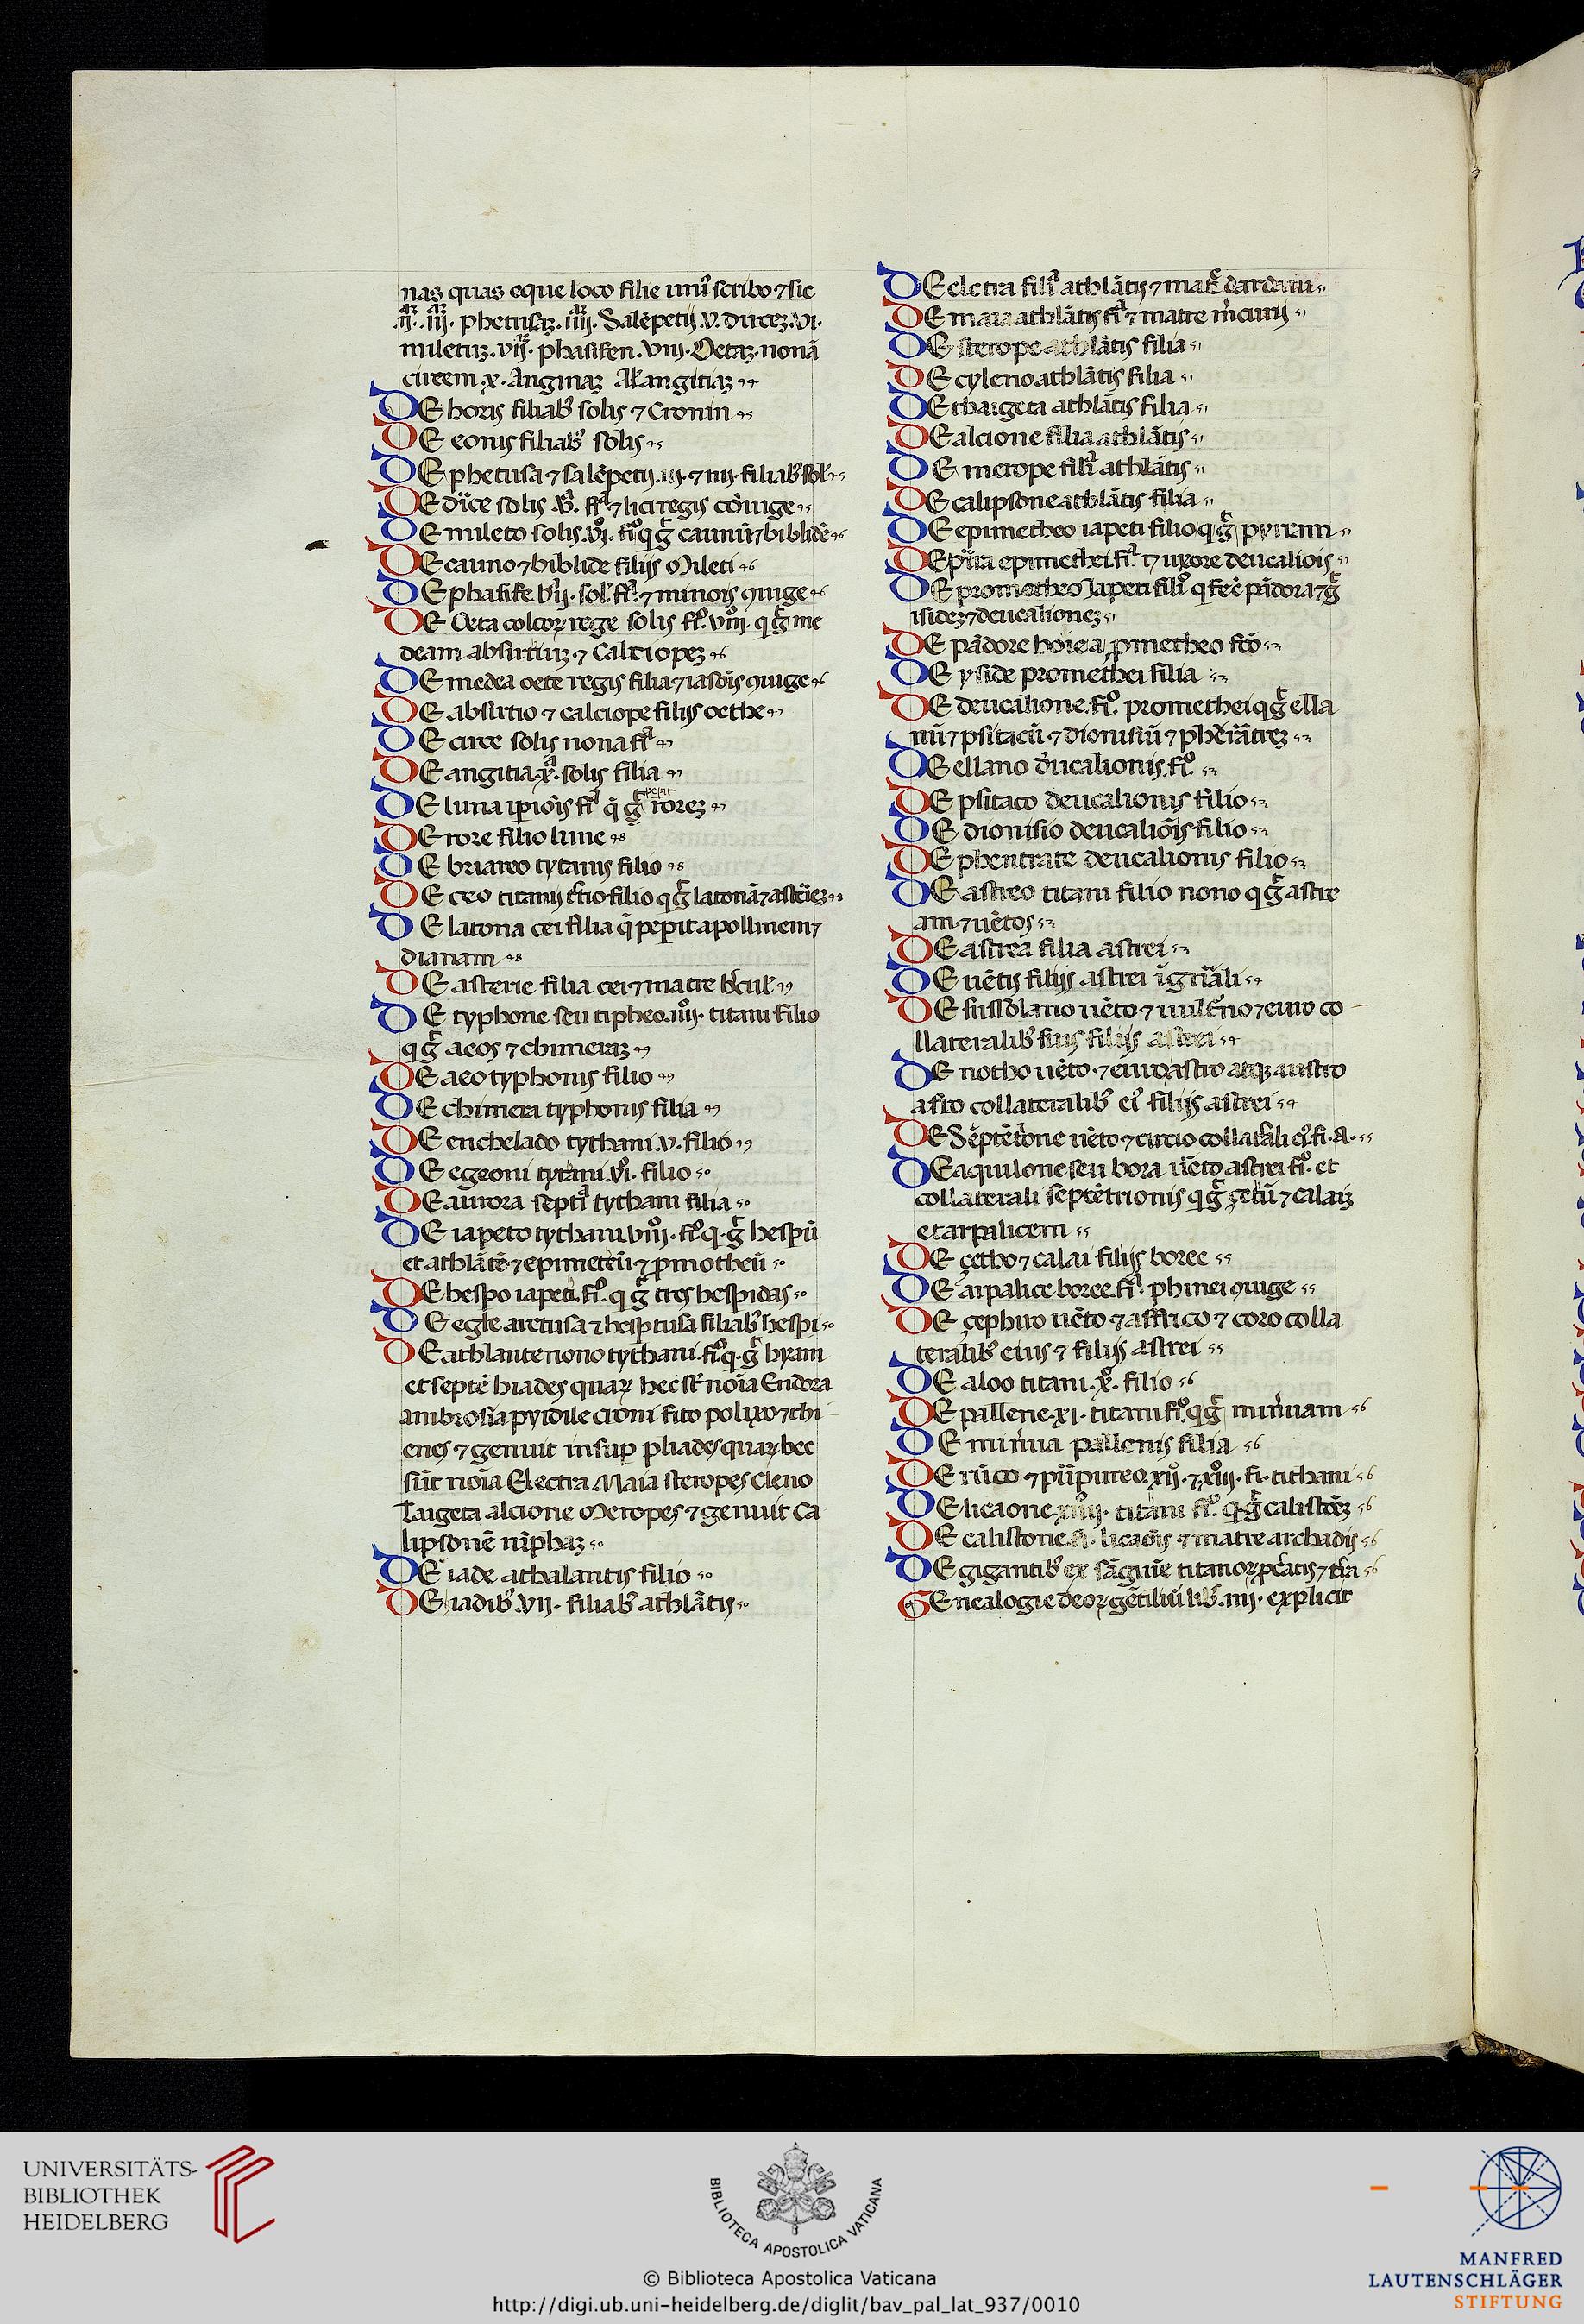 nas quas eque loco filie unius scribo ⁊ sic
.ij. .iij. phetusaz .iiij. Salēpetij .v. dircez .vi.
miletuz .vij. phasifen .viij. Oetaz nonā
circem .x. Anginaz Al' angitiaz 44
DE horis filiab' solis ⁊ Cronin 45
DE eonis filiab' solis 45
DE phetusa ⁊ salēpetij .iij. ⁊ iiij. filiab' sol' 45
DE dirce solis .v. fꝉa ⁊ lici regis cōiuge 45
DE mileto solis .vj. fi° q gr̄ caunū ⁊ biblidē 46
DE cauno ⁊ biblide filijs Mileti 46
DE phasife vij. sol' fꝉa ⁊ minois ꝯiuge 46
DE Oeta colcoꝝ rege solis f°. viij. q gr̄ me
deam absirtiuz ⁊ Calciopez 46
DE medea oete regis filia ⁊ iasōis ꝯiuge 46
DE absirtio ⁊ calciope filijs oethe 47
DE circe solis nona fꝉa 47
DE angitia .x. solis filia 47
DE luna ipiōis fꝉa q̄ gr̄ peperit rorez 47
DE rore filio lune 48
DE briareo tytanis filio 48
DE ceo titanis t'tio filio q gr̄ latonā ⁊ asteriez 48
DE latona cei filia q̄ peperit apollinem ⁊
dianam 48
DE asterie filia cei ⁊ matre h'cul' 49
DE typhone seu tipheo .iiij. titani filio
q gr̄ aeos ⁊ chimeraz 49
DE aeo typhonis filio 49
DE chimera typhonis filia 49
DE enchelado tythani .v. filio 49
DE egeoni tytani .vi. filio 50
DE aurora septīa tythani filia 50
DE iapeto tythani viij. f°. q. gr̄ hesperū
et athlātē ⁊ epimeteū ⁊ ꝓmotheū 50
DE hespo iapeti f°. q gr̄ tres hespidas 50
DE egle aretusa ⁊ hesptusa filiab' hespi 50
DE athlante nono tythani f° q. gr̄ hyam
et septē hiades quaꝝ hec sūt noīa Eudora
ambrosia pyidile cioni fito polixo ⁊ thi
enes ⁊ genuit insuꝑ pliades quaꝝ hec
sūt noīa Electra Maia steropes cleno
Taigeta alcione Meropes ⁊ genuit ca
lipsonē nīphaz 50
DE iade athalantis filio 50
DE iadib' .vii. filiab' athlātis 50
DE electra filīa athlātis ⁊ matre dardani 51
DE maia athlātis fīa ⁊ matre m'curij 51
DE sterope athlātis filia 51
DE cyleno athlātis filia 51
DE thaigeta athlātis filia 51
DE alcione filia athlātis 51
DE merope filī athlātis 51
DE calipsone athlātis filia 51
DE epimetheo iapeti filio q gr̄ pyrram 51
DE pirra epimethei fꝉa ⁊ uxore deucaliois 51
DE prometheo Iapeti fili° q fecē pādora ⁊ gr̄
isidez ⁊ deucalionez 51
DE pādore hoīe a prometheo fcō 52
DE yside promethei filia 53
DE deucalione f°. promethei q gr̄ ella
nū ⁊ psitacū ⁊ dionisiū ⁊ phētrātez 53
DE ellano deucalionis f°. 53
DE psitaco deucalionis filio 53
DE dionisio deucaliōis filio 53
DE phentrate deucalionis filio 53
DE astreo titani filio nono q gr̄ astre
am ⁊ uētos 53
DE astrea filia astrei 53
DE uētis filijs astrei ī gn̄ali 54
DE subsolano uēto ⁊ uulturno ⁊ euro co
llateralib' suis filijs astrei 54
DE notho uēto ⁊ euroastro atqꝫ austro
afro collateralib' ei' filijs astrei 54
DE Septētrione uēto ⁊ circio collat'ali ei' fi. A. 55
DE aquilone seu bora uēto astrei f°. et
collaterali septētrionis q gr̄ çetū ⁊ calaiz
et arpalicem 55
DE çetho ⁊ calai filijs boree 55
DE arpalice boree fꝉa. phinei ꝯiuge 55
DE çephiro uēto ⁊ affrico ⁊ coro colla
teralib' eius ⁊ filijs astrei 55
DE aloo titani .x. filio 56
DE pallene .xi. titani f° q gr̄ min'uam 56
DE min'ua pallenis filia 56
DE rūco ⁊ purpureo xij. ⁊ xiij. fi. tithani 56
DE licaone .xiiij. titani f°. q gr̄ calistōez 56
DE calistone fi. licaōis ⁊ matre archadis 56
DE gigantib' ex sāguīe titanoꝝ ꝓcreatis ⁊ t'ra 56
GEnealogie deoꝝ gētiliū lib' .iiij. explicit
UNIVERSITÄTS-
BIBLIOTHEK
HEIDELBERG
BIBLIOTECA APOSTOLICA VATICANA
© Biblioteca Apostolica Vaticana
http://digi.ub.uni-heidelberg.de/diglit/bav_pal_lat_937/0010
MANFRED
LAUTENSCHLÄGER
STIFTUNG